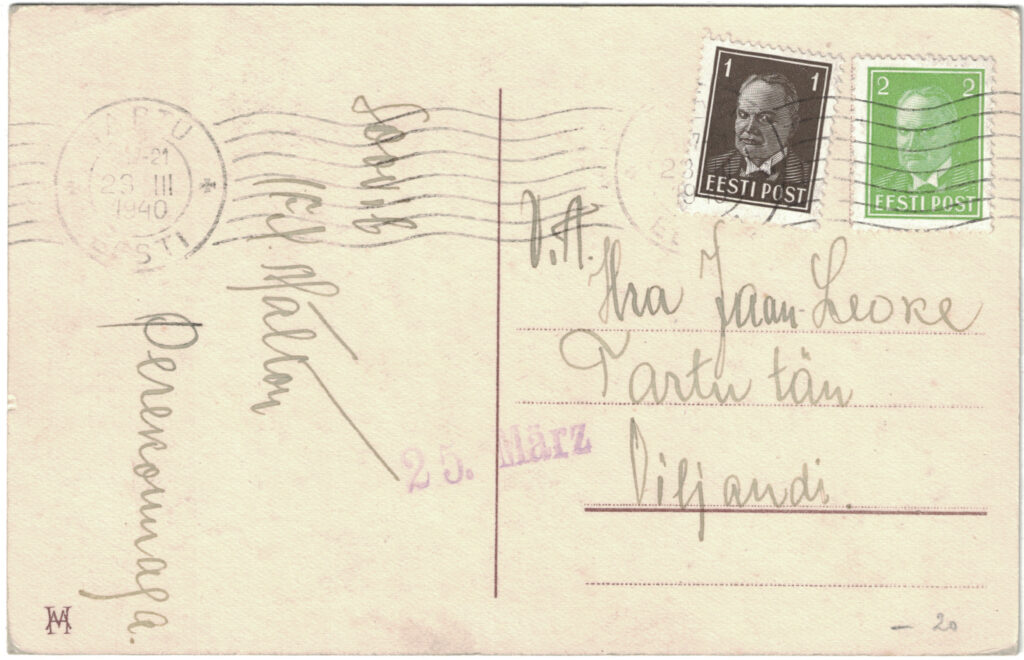 TARTU
23 III
1940
EESTI
1 1
EESTI POST
2 2
EESTI POST
Soovib
Perekonnaga.
V.A.
Hra Jaan Leoke
Tartu tän
Viljandi.
25. März
– 20